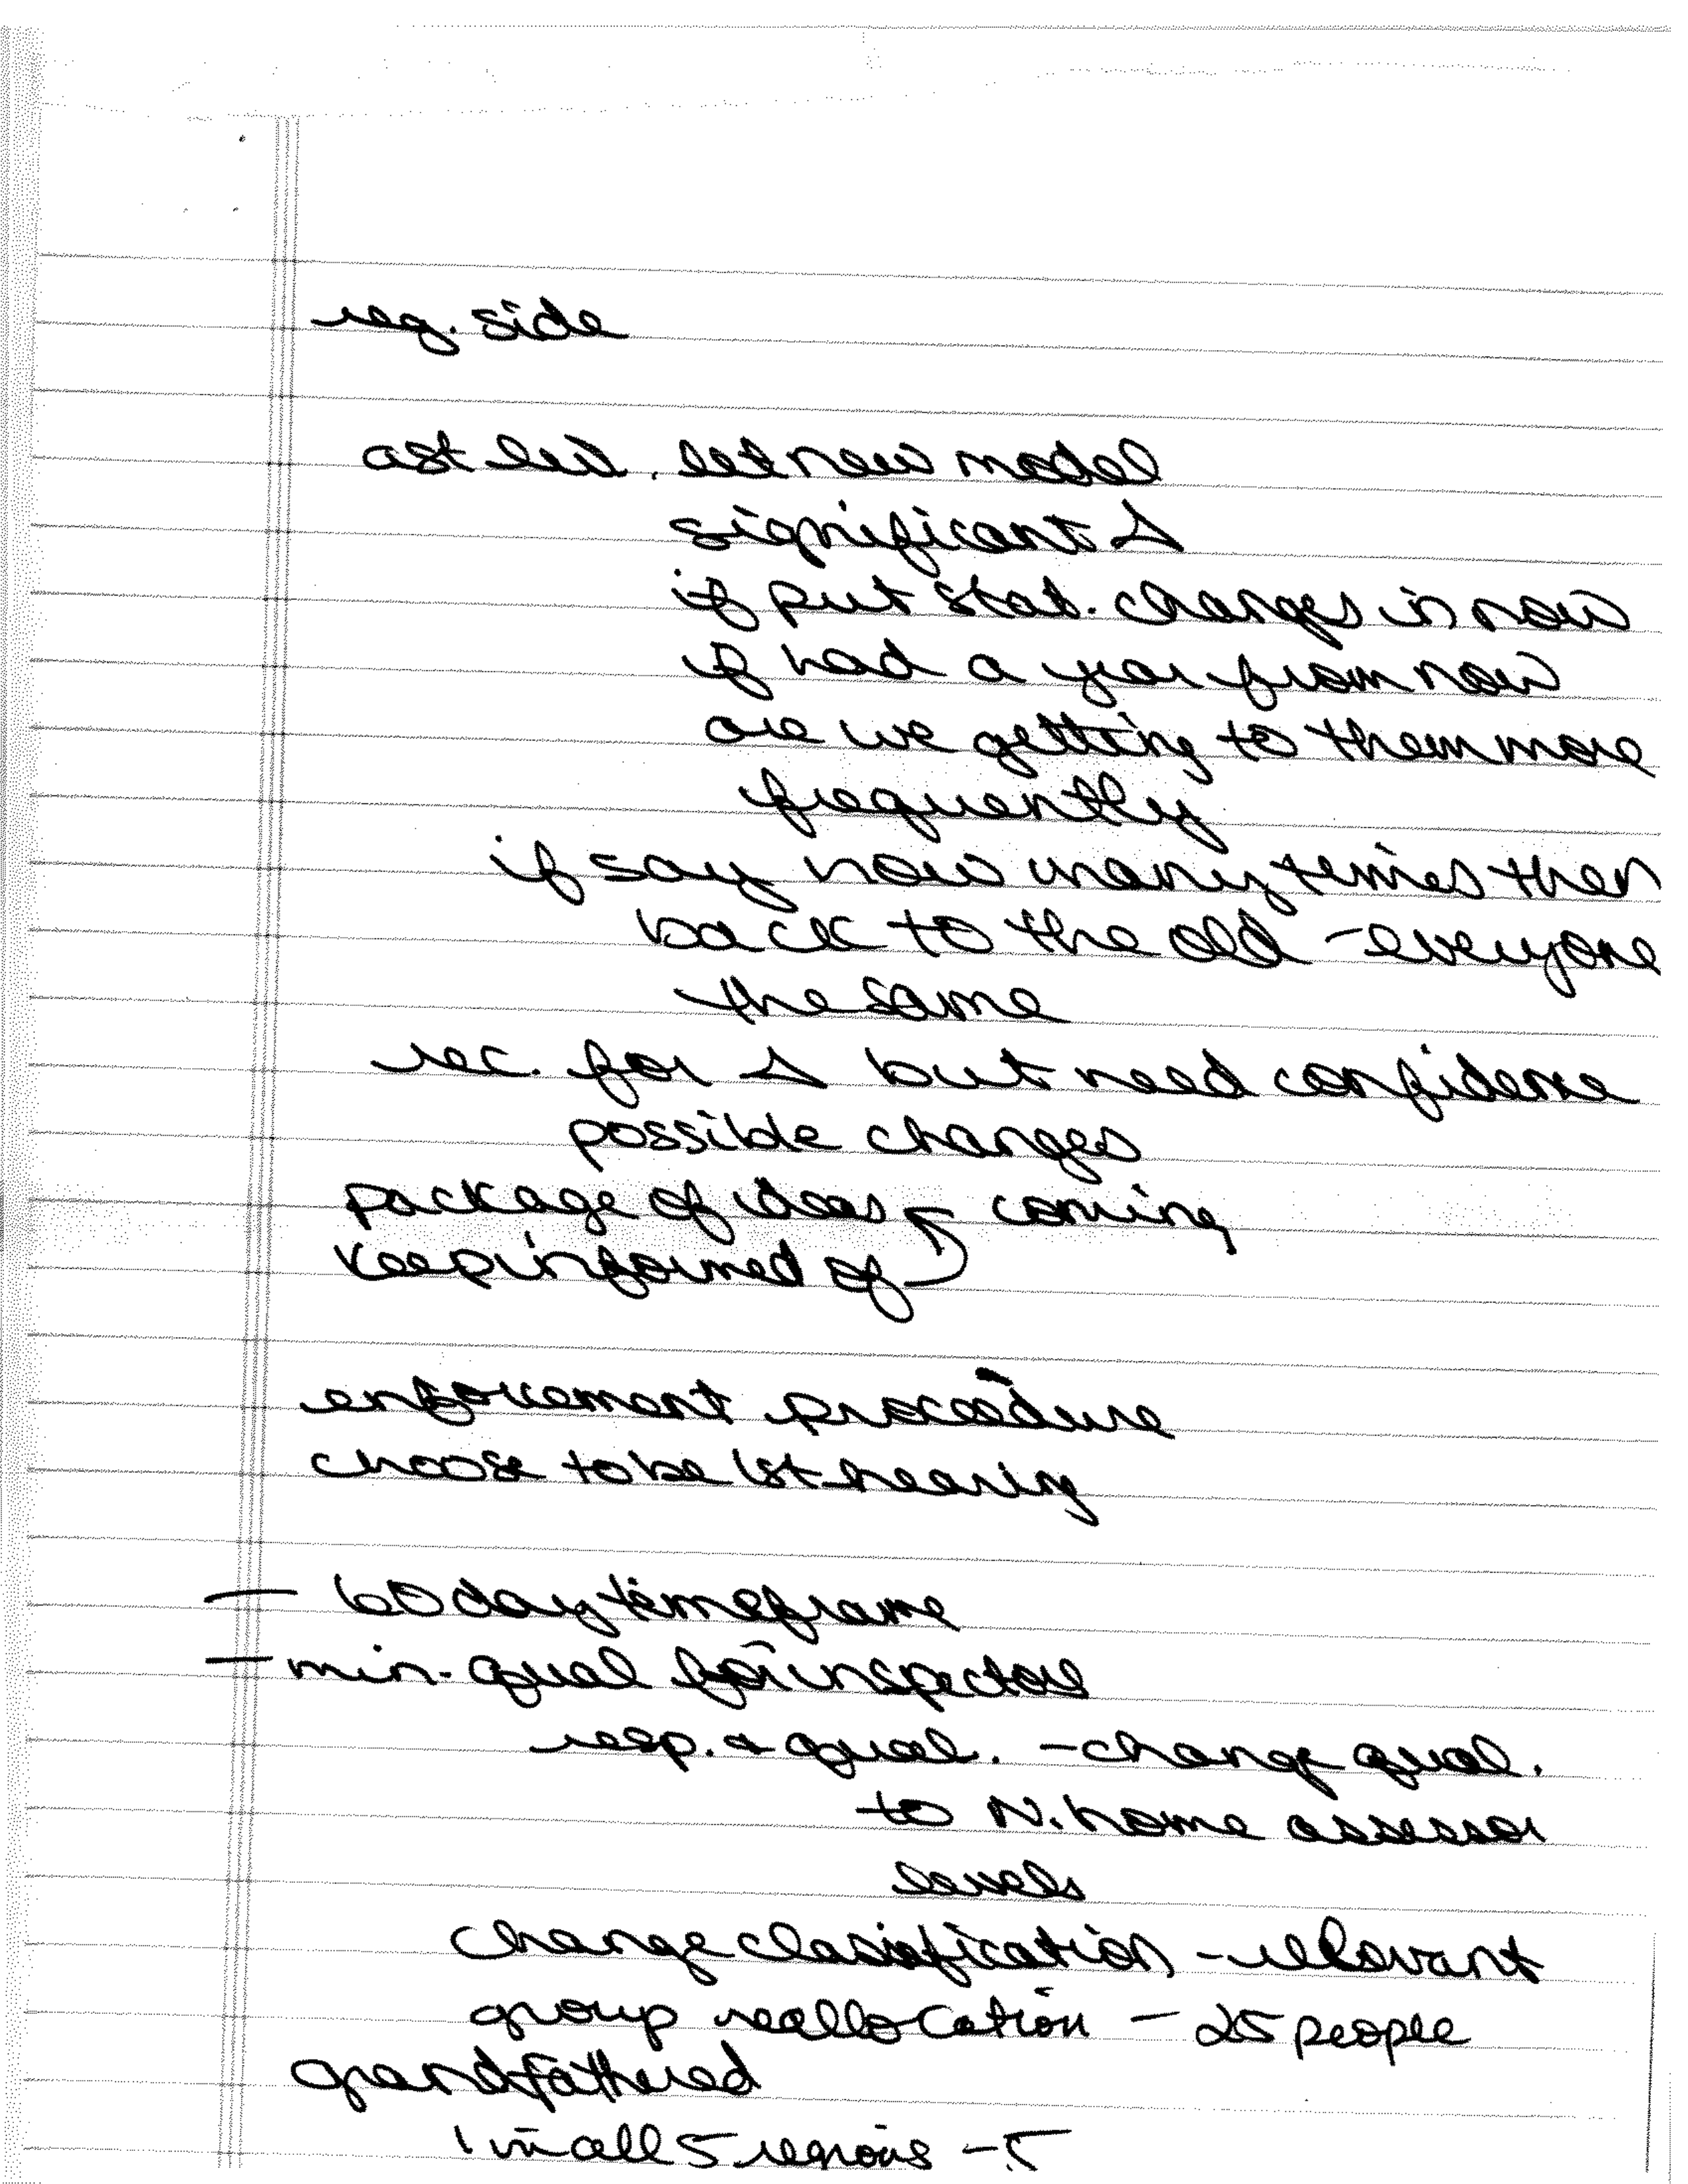 reg. side
ast leid. let new model
significant Δ
if put stat. changes in now
if had a year from now
are we getting to them more
frequently
if say now many times then
back to the old - everyone
the same
rec. for Δ but need confidence
possible changes
package of ideas coming
keep informed of
enforcement procedure
choose to be 1st hearing
— 60 day timeframe
— min. qual for inspectors
resp. & qual. - change qual.
to N. home assessor
levels
change classification - relevant
group reallocation - 25 people
grandfathered
1 in all 5 regions - 5